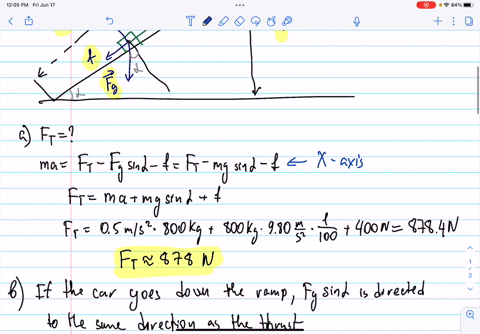 12:05 PM Fri Jun 17
84%
f
α
F⃗g
α
a) FT = ?
ma = FT − Fg sinα − f = FT − mg sinα − f ← X-axis
FT = ma + mg sinα + f
FT = 0.5 m/s² · 800 kg + 800 kg · 9.80 m/s² · 1/100 + 400 N = 878.4 N
FT ≈ 878 N
1/3
b) If the car goes down the ramp, Fg sinα is directed
to the same direction as the thrust